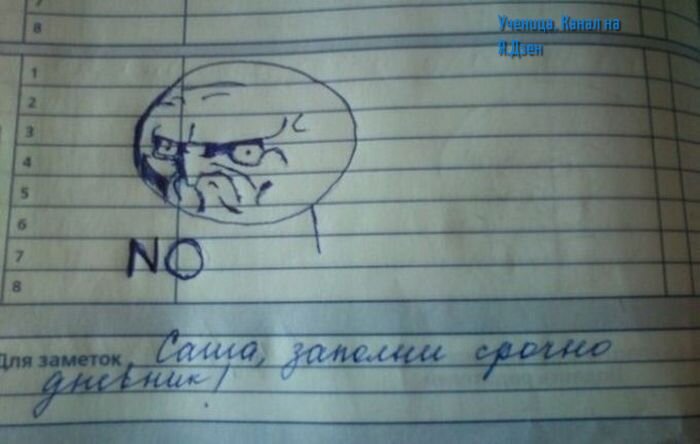 8
Ученица. Канал на
Я.Дзен
1
2
3
4
5
6
7
8
NO
Для заметок Саша, заполни срочно
дневник!